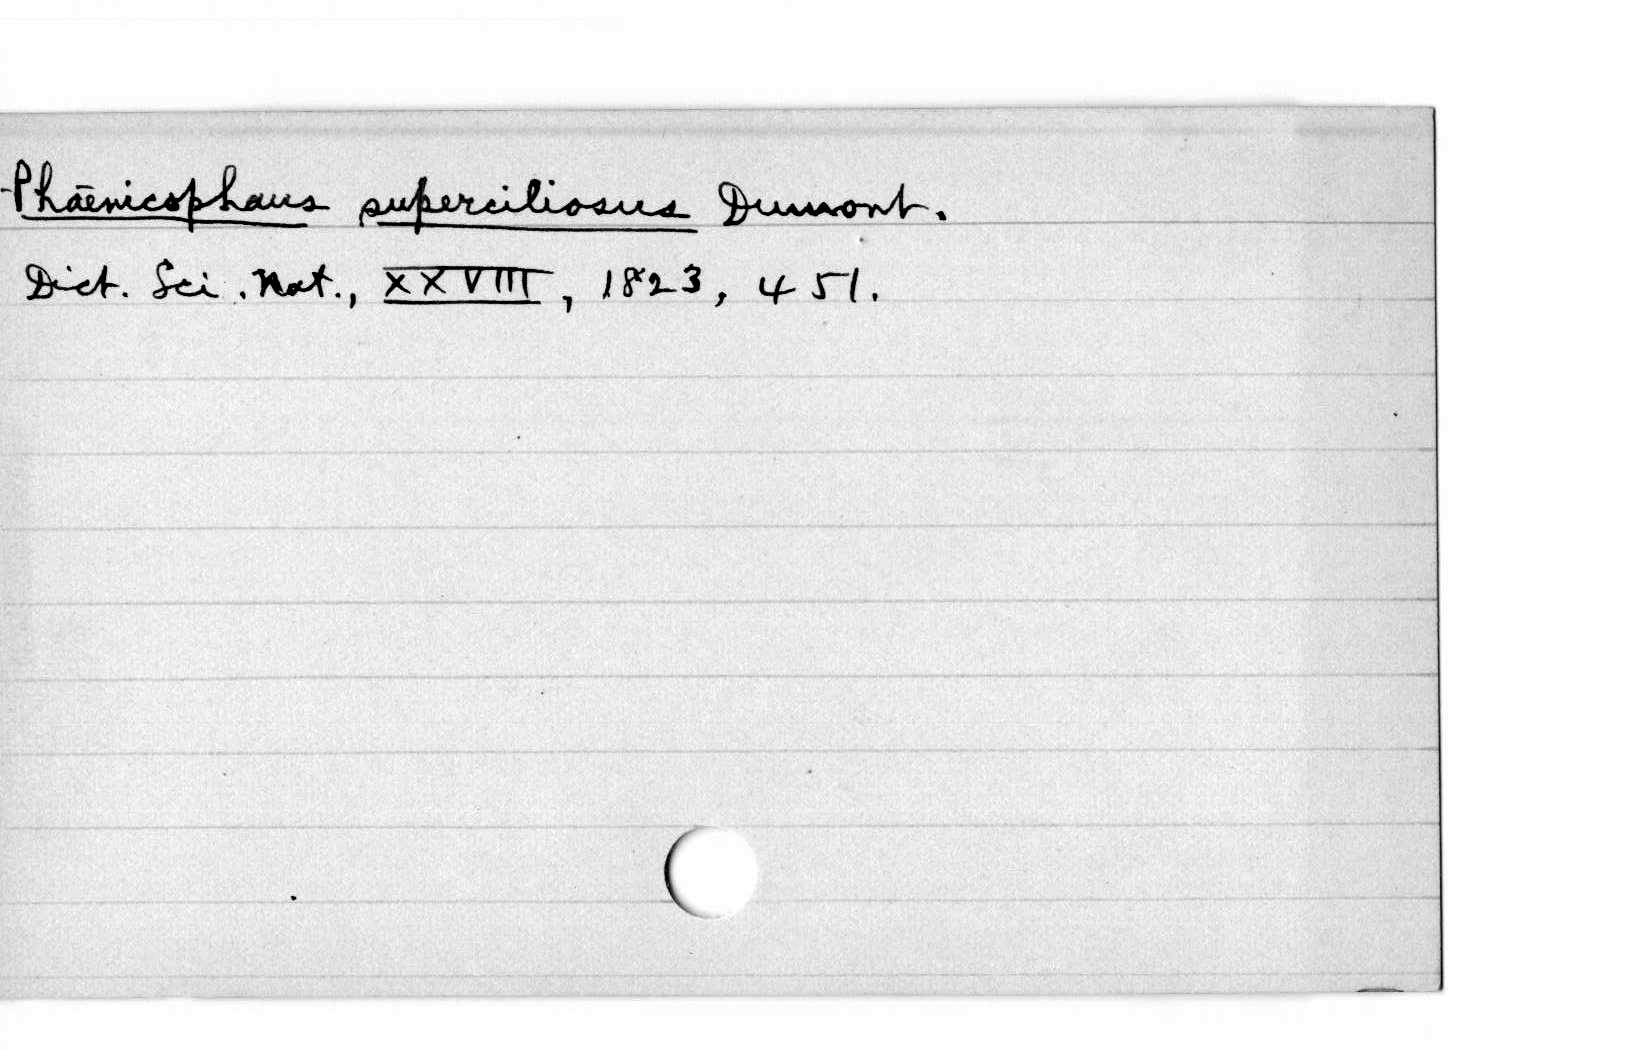 Phaenicophaus superciliosus Dumont.
Dict. Sci. Nat., XXVIII, 1823, 451.